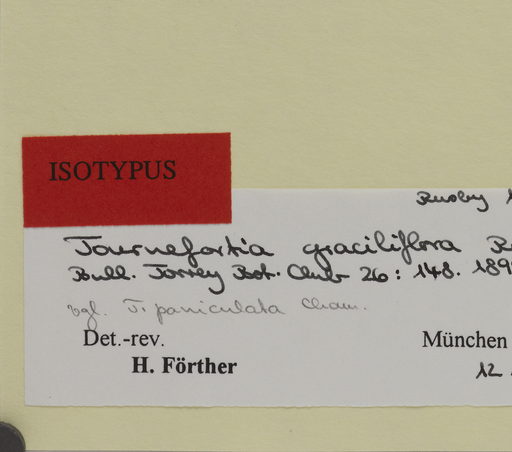 ISOTYPUS
Rusby
Tournefortia graciliflora
Bull. Torrey Bot. Club 26: 148. 189
vgl. T. paniculata Cham.
Det.-rev.
München
H. Förther
12